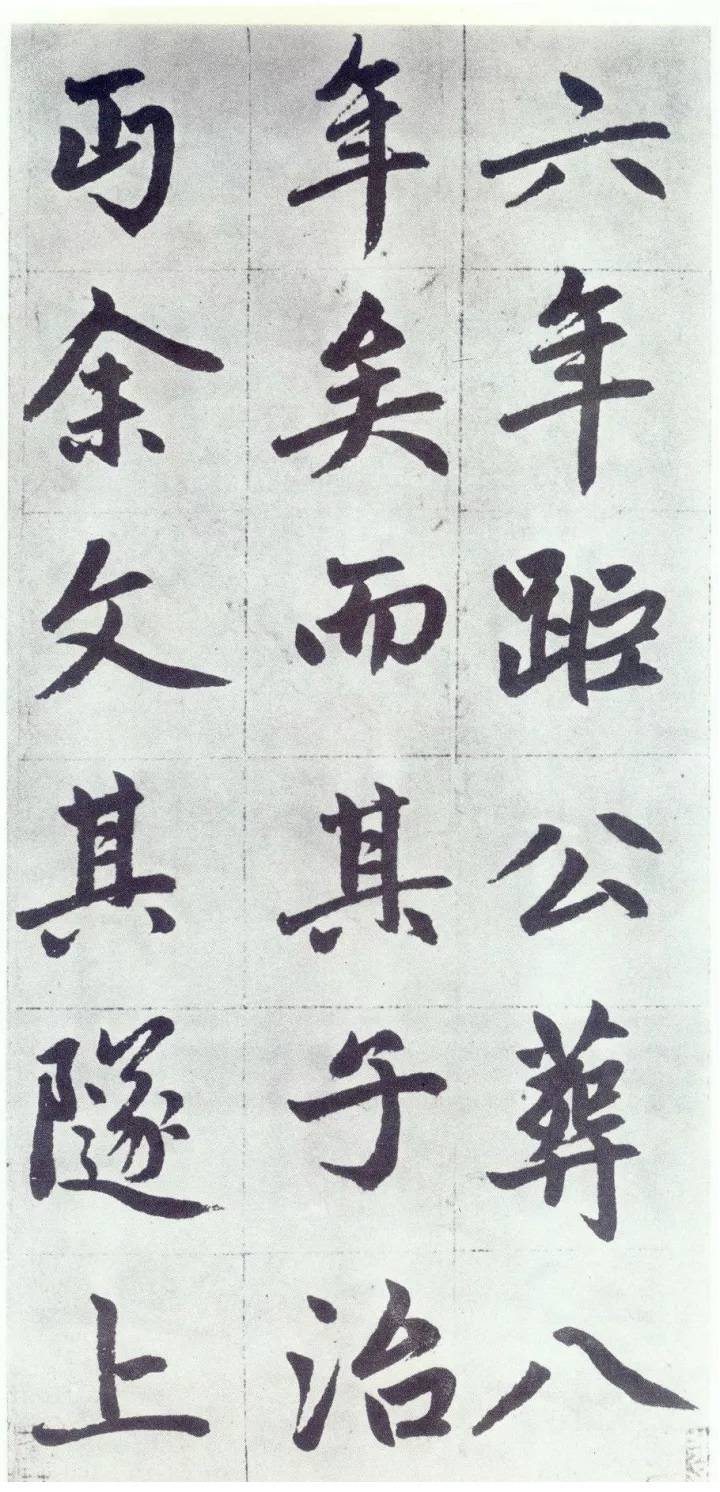 六年距公葬八
年矣而其子治
丐余文其隧上